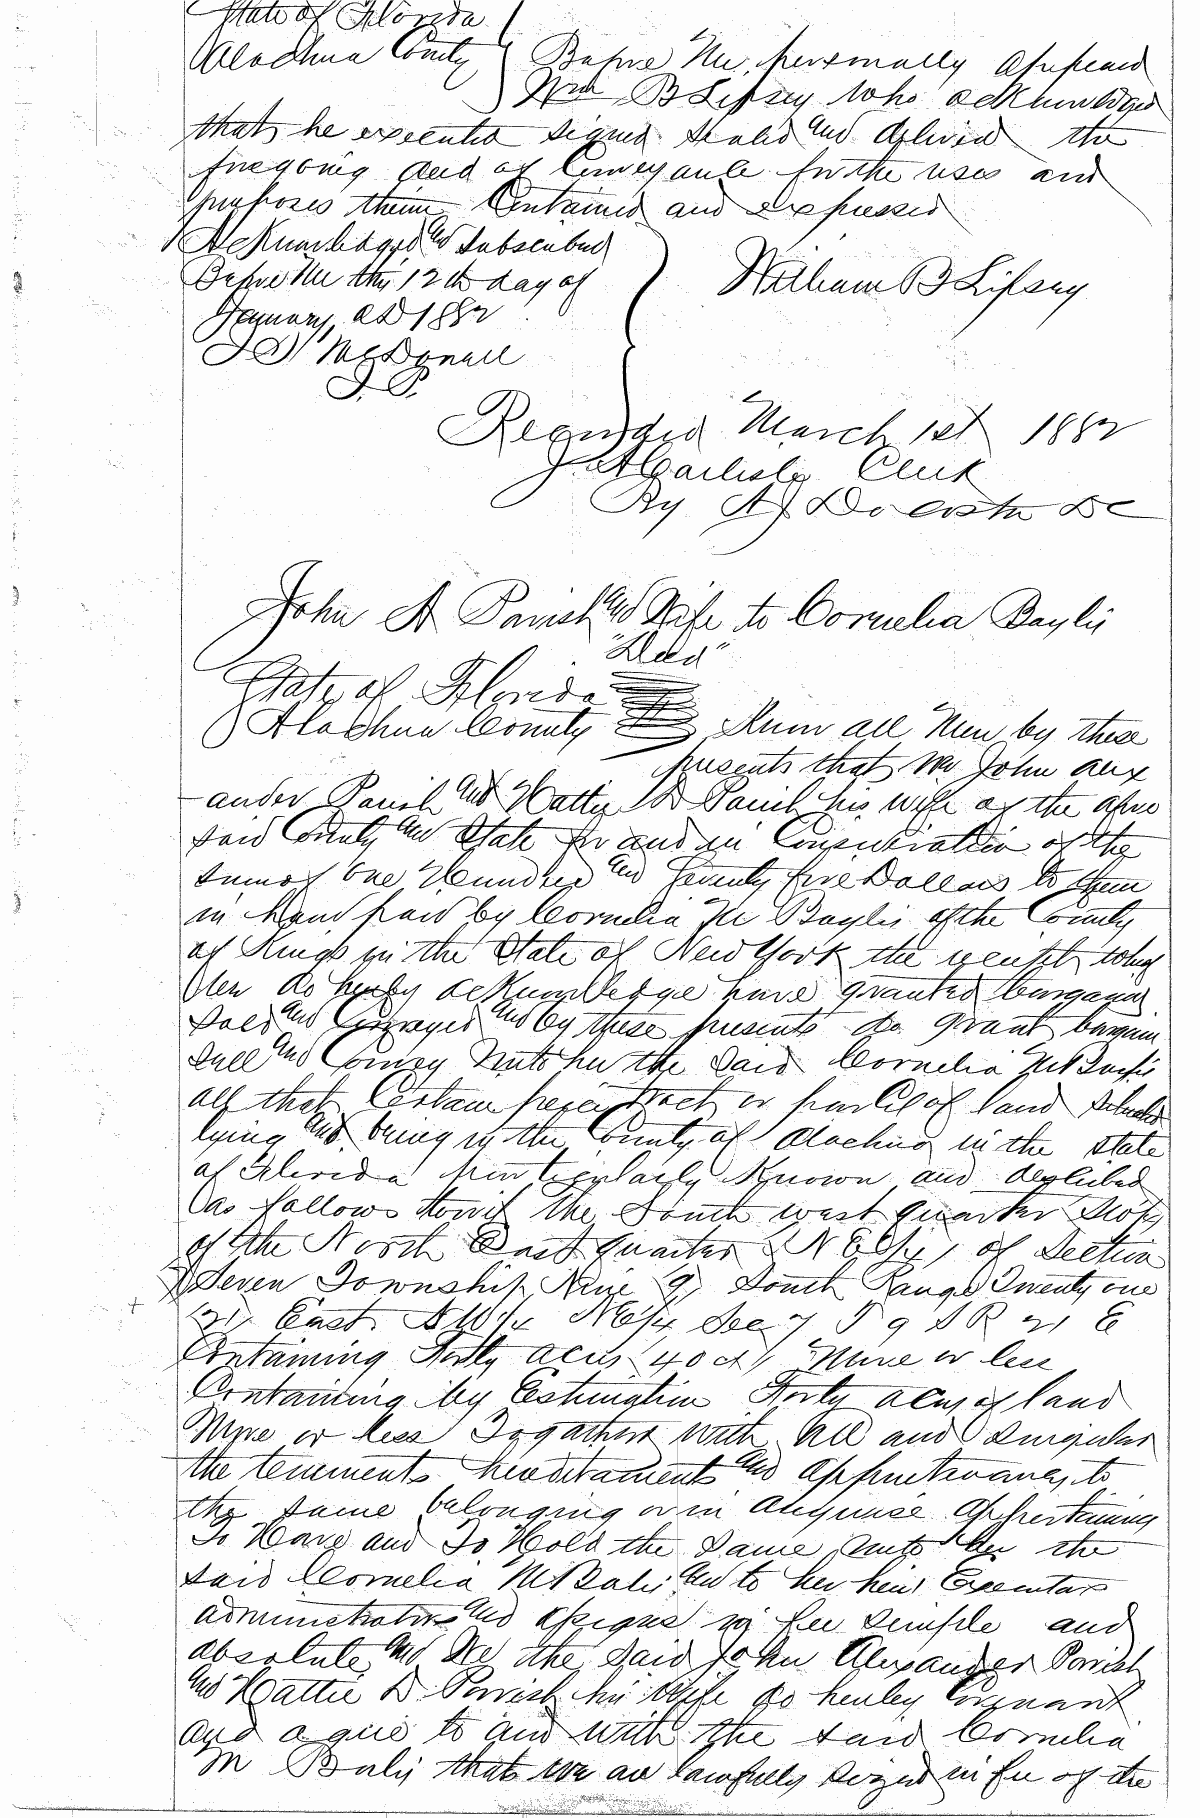 State of Florida
Alachua County } Before Me personally appeard
Wm B Lipsey who acknowledged
that he executed signed sealed and delivered the
foregoing deed of Conveyance for the uses and
purposes therein Contained and expressed
Acknowledged and subscribed
Before Me this 12th day of
January, AD 1882
William B Lipsey
McDonell
J. P.
Recorded March 1st 1882
J A Carlisle Clerk
By A J DaCosta DC
John A Parish and Wife to Cornelia Baylis
"Deed"
State of Florida
Alachua County Know all Men by these
presents that we John Alex
ander Parish and Hattie D Parish his wife of the afore
said County and State for and in Consideration of the
sum of One Hundred and Seventy five Dollars to them
in hand paid by Cornelia M Baylis of the County
of Kings in the State of New York the receipt whereof
do hereby acknowledge have granted bargained
sold and Conveyed and by these presents do grant bargain
sell and Convey unto her the said Cornelia M Baylis
all that Certain piece tract or parcel of land situated
lying and being in the County of Alachua in the State
of Florida particularly Known and described
as follows towit the South west quarter
of the North East quarter (NE 1/4) of Section
7 Seven Township Nine (9) South Range Twenty one
(21) East. SW 1/4 NE 1/4 Sec 7 T 9 S R 21 E
Containing Forty acres (40 a) More or less
Containing by Estimation Forty acres of land
More or less Togather with All and Singular
the tenements hereditaments and appurtenances to
the same belonging or in anywise appertaining
To Have and To Hold the Same unto her the
said Cornelia M Balis and to her heirs Executors
administrators and assigns in fee simple and
absolute and We the said John Alexander Parrish
and Hattie D. Parrish his Wife do hereby Covenant
and agree to and with the said Cornelia
M Balis that we are lawfully seized in fee of the